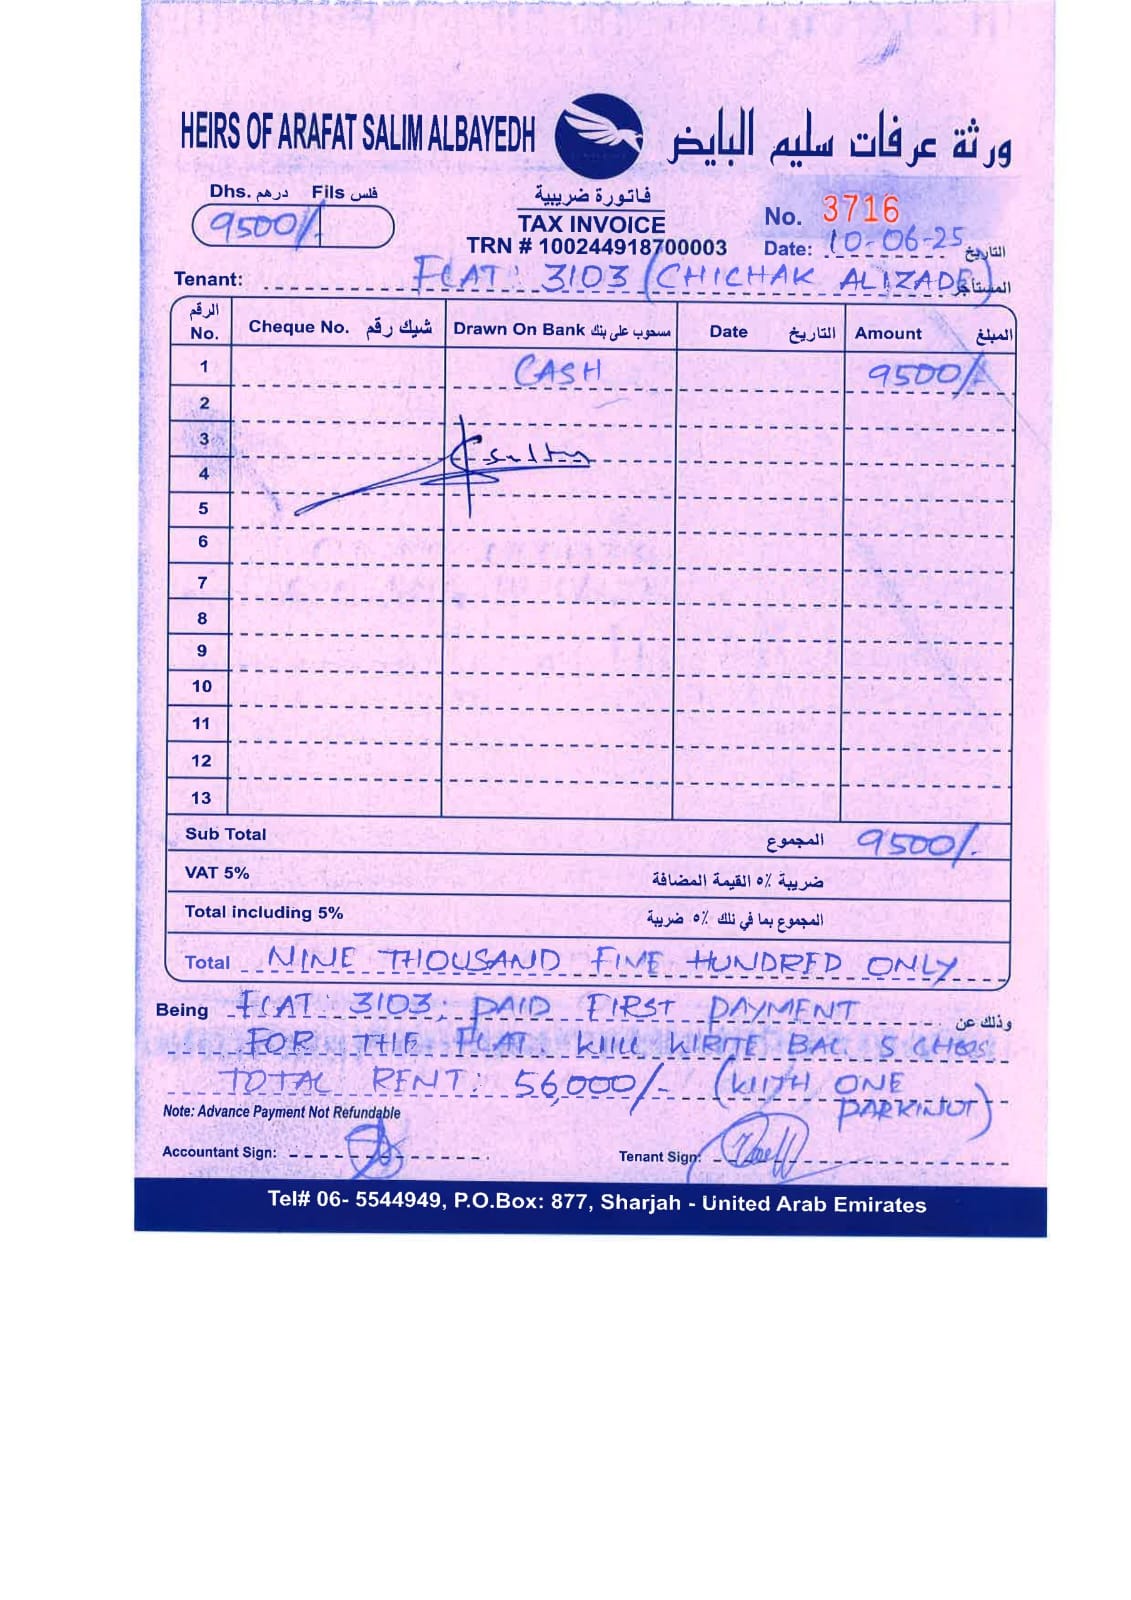 HEIRS OF ARAFAT SALIM ALBAYEDH
ورثة عرفات سليم البايض
Dhs. درهم Fils فلس
9500/-
فاتورة ضريبية
TAX INVOICE
TRN # 100244918700003
No. 3716
Date: 10-06-25 التاريخ
Tenant: FLAT: 3103 (CHICHAK ALIZADE) المستأجر
الرقم No. Cheque No. شيك رقم Drawn On Bank مسحوب على بنك Date التاريخ Amount المبلغ
1 CASH 9500/-
2
3
4
5
6
7
8
9
10
11
12
13
Sub Total المجموع 9500/-
VAT 5% ضريبة ٥٪ القيمة المضافة
Total including 5% المجموع بما في ذلك ٥٪ ضريبة
Total NINE THOUSAND FIVE HUNDRED ONLY
Being FLAT: 3103: PAID FIRST PAYMENT وذلك عن
FOR THE FLAT. WILL WRITE BAL. 5 CHQS
TOTAL RENT: 56,000/- (WITH ONE
PARKING)
Note: Advance Payment Not Refundable
Accountant Sign:
Tenant Sign:
Tel# 06- 5544949, P.O.Box: 877, Sharjah - United Arab Emirates